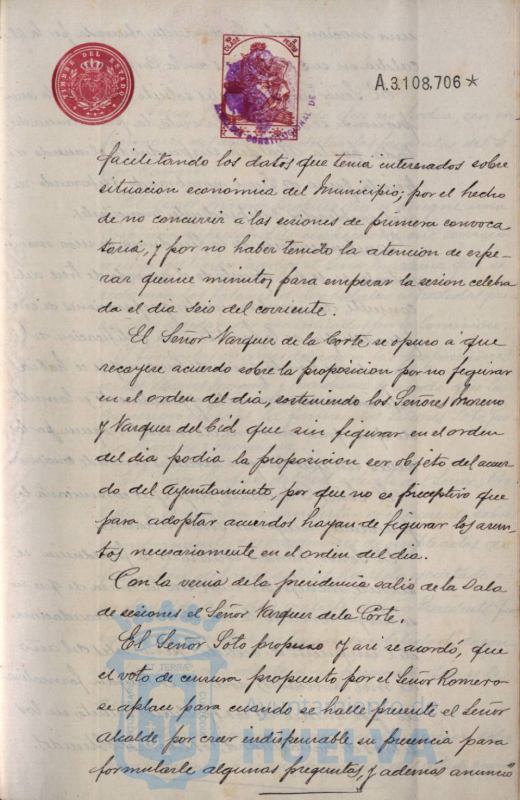 TIMBRE DEL ESTADO
A.3.108,706*
CONSTITUCIONAL DE
facilitando los datos que tenia interesados sobre
situacion económica del Municipio; por el hecho
de no concurrir á las sesiones de primera convoca
toria, y por no haber tenido la atencion de espe-
rar quince minutos para empezar la sesion celebra
da el dia seis del corriente.
El Señor Vazquez de la Corte, se opuso á que
recayese acuerdo sobre la proposicion por no figurar
en el orden del dia, sosteniendo los Señores Moreno
y Vazquez del Cid que sin figurar en el orden
del dia podia la proposicion ser objeto del acuer
do del Ayuntamiento, por que no es preceptivo que
para adoptar acuerdos hayan de figurar los asun-
tos necesariamente en el orden del dia.
Con la venia de la presidencia salio de la Sala
de sesiones el Señor Vazquez de la Corte.
El Señor Soto propuso y asi se acordó, que
el voto de censura propuesto por el Señor Romero
se aplace para cuando se halle presente el Señor
Alcalde por creer indispensable su presencia para
formularle algunas preguntas, y además anunció
HUELVA